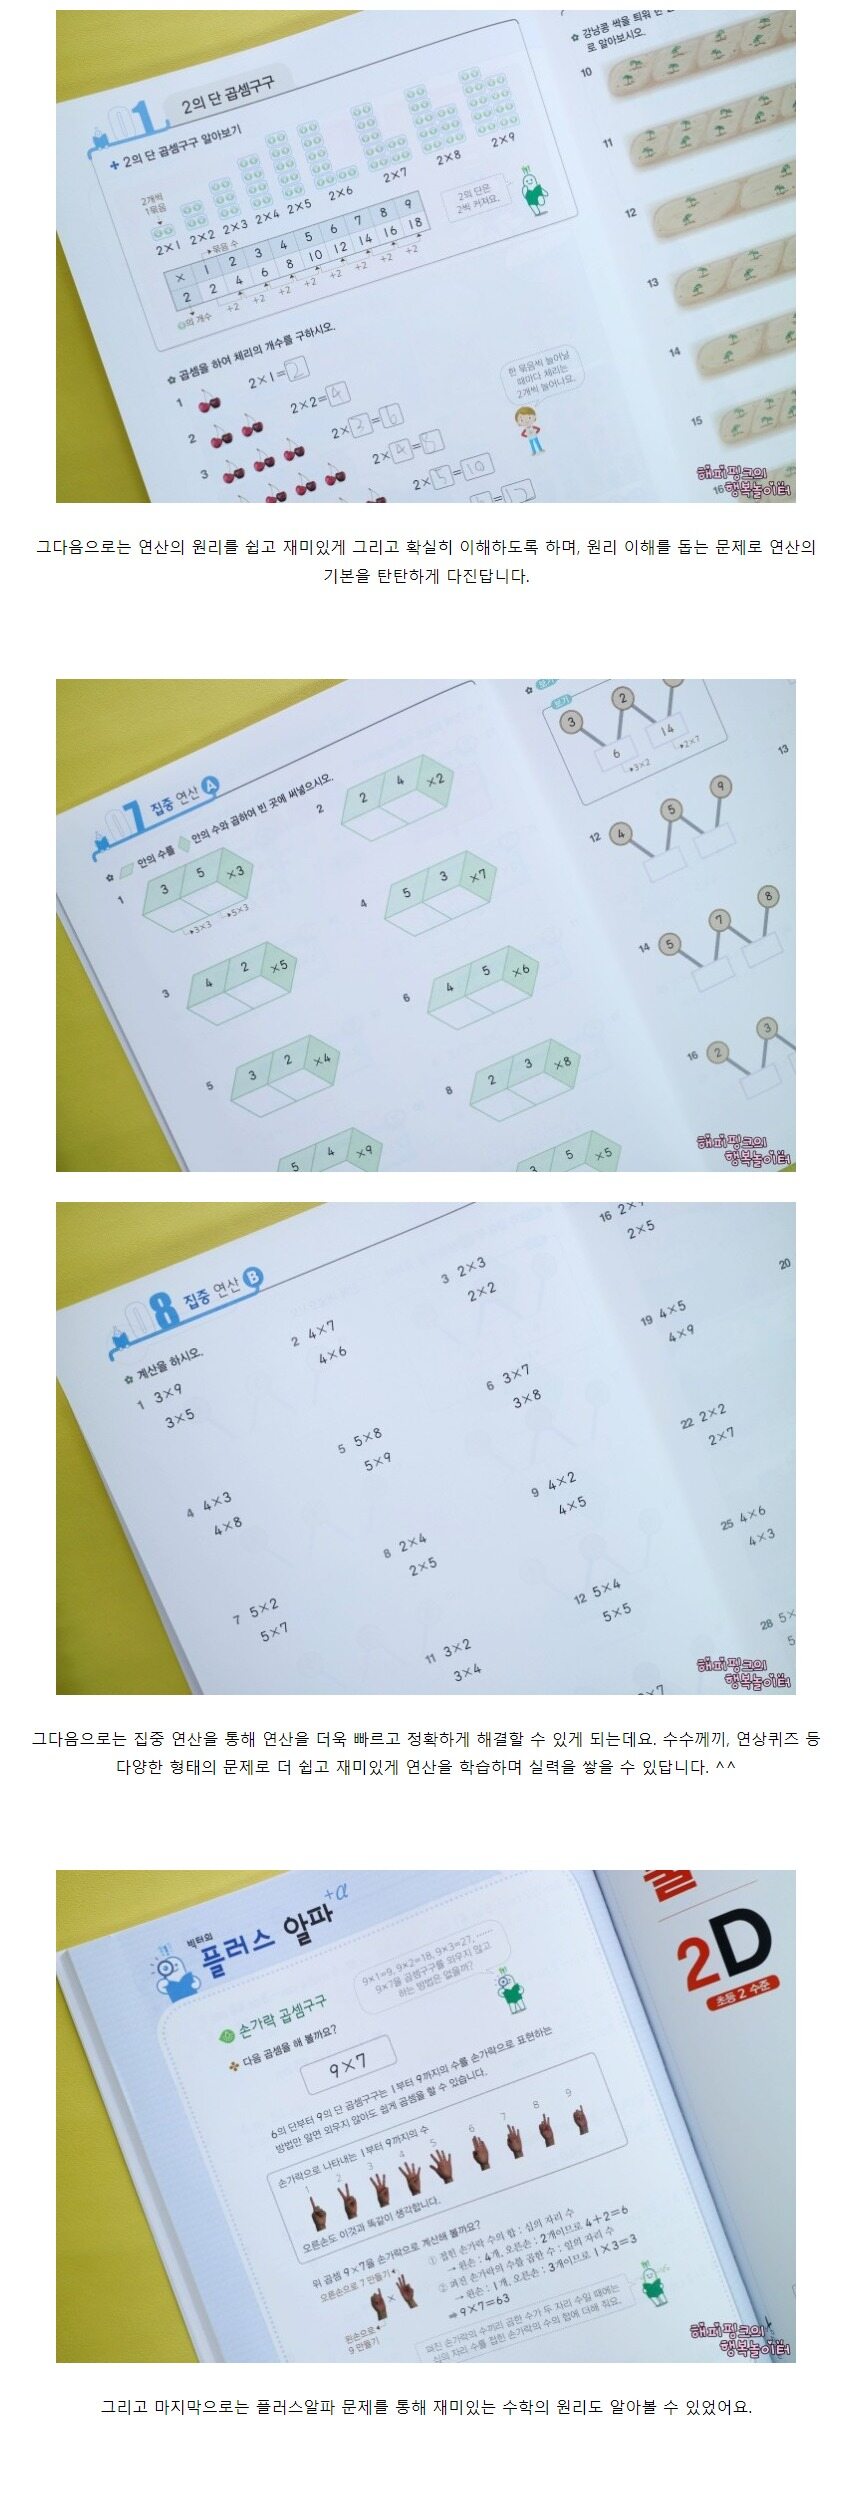 01 2의 단 곱셈구구
+ 2의 단 곱셈구구 알아보기
2개씩
1묶음
2×1 2×2 2×3 2×4 2×5 2×6 2×7 2×8 2×9
묶음 수
× 1 2 3 4 5 6 7 8 9
2 2 4 6 8 10 12 14 16 18
+2 +2 +2 +2 +2 +2 +2 +2
의 개수
2의 단은
2씩 커져요.
곱셈을 하여 체리의 개수를 구하시오.
1 2×1=2
2 2×2=4
3 2×3=6
2×4=8
2×5=10
한 묶음씩 늘어날
때마다 체리는
2개씩 늘어나요.
강낭콩 싹을 틔워
로 알아보시오.
10
11
12
13
14
15
16
해피핑크의
행복놀이터
그다음으로는 연산의 원리를 쉽고 재미있게 그리고 확실히 이해하도록 하며, 원리 이해를 돕는 문제로 연산의
기본을 탄탄하게 다진답니다.
07 집중 연산 A
안의 수를 안의 수와 곱하여 빈 곳에 써넣으시오.
1 3 5 ×3
3×3 5×3
2 2 4 ×2
3 4 2 ×5
4 5 3 ×7
5 3 2 ×4
6 4 5 ×6
8 2 3 ×8
5 4 ×9
3 5 ×5
보기
3 2
6 14
3×2 2×7
12 4 5 9
13
14 5 7 8
16 2 3
해피핑크의
행복놀이터
08 집중 연산 B
계산을 하시오.
1 3×9
3×5
2 4×7
4×6
3 2×3
2×2
4 4×3
4×8
5 5×8
5×9
6 3×7
3×8
7 5×2
5×7
8 2×4
2×5
9 4×2
4×5
11 3×2
3×4
12 5×4
5×5
16
2×5
19 4×5
4×9
20
22 2×2
2×7
25 4×6
4×3
28 5×
해피핑크의
행복놀이터
그다음으로는 집중 연산을 통해 연산을 더욱 빠르고 정확하게 해결할 수 있게 되는데요. 수수께끼, 연상퀴즈 등
다양한 형태의 문제로 더 쉽고 재미있게 연산을 학습하며 실력을 쌓을 수 있답니다. ^^
빅터의
플러스 알파 +α
9×1=9, 9×2=18, 9×3=27, ······
9×7을 곱셈구구를 외우지 않고
하는 방법은 없을까?
손가락 곱셈구구
다음 곱셈을 해 볼까요?
9×7
6의 단부터 9의 단 곱셈구구는 1부터 9까지의 수를 손가락으로 표현하는
방법만 알면 외우지 않아도 쉽게 곱셈을 할 수 있습니다.
손가락으로 나타내는 1부터 9까지의 수
1 2 3 4 5 6 7 8 9
오른손도 이것과 똑같이 생각합니다.
위 곱셈 9×7을 손가락으로 계산해 볼까요?
오른손으로 7 만들기
×
왼손으로
9 만들기
① 접힌 손가락 수의 합 : 십의 자리 수
→ 왼손 : 4개, 오른손 : 2개이므로 4+2=6
② 펴진 손가락의 수를 곱한 수 : 일의 자리 수
→ 왼손 : 1개, 오른손 : 3개이므로 1×3=3
⇒ 9×7=63
펴진 손가락의 수끼리 곱한 수가 두 자리 수일 때에는
십의 자리 수를 접힌 손가락의 수의 합에 더해 줘요.
2D
초등 2 수준
해피핑크의
행복놀이터
그리고 마지막으로는 플러스알파 문제를 통해 재미있는 수학의 원리도 알아볼 수 있었어요.